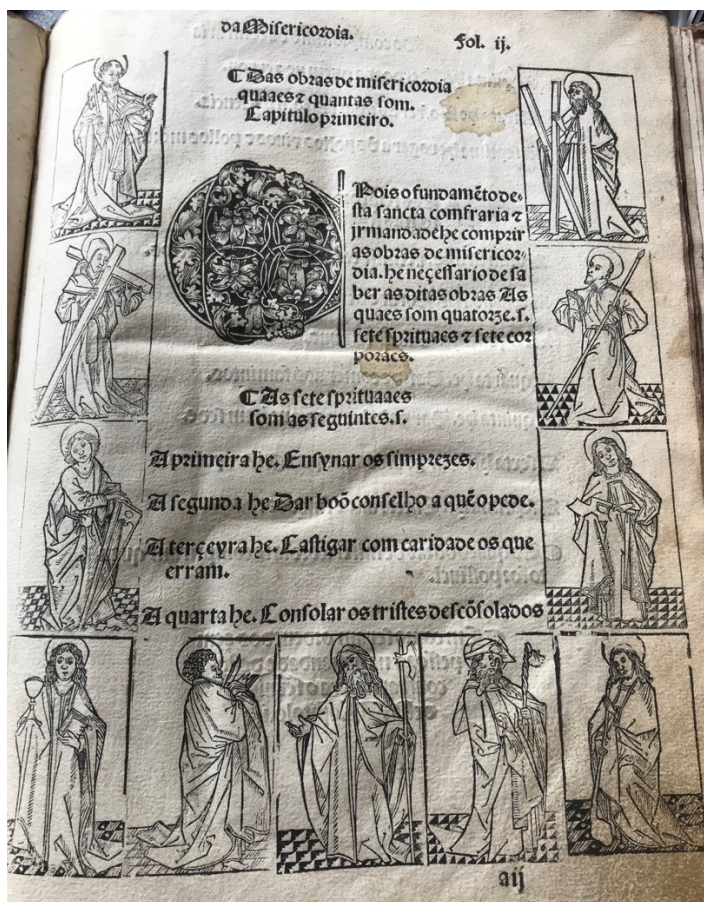 da Misericordia.
Fol. ij.
¶ Das obras de misericordia
quaaes ⁊ quantas som.
Capitulo primeiro.
Pois o fundamẽto de
sta sancta comfraria ⁊
jrmandade he comprir
as obras de misericor⸗
dia. he neçessario de sa
ber as ditas obras As
quaes som quatorze. s.
sete sprituaes ⁊ sete cor
poraes.
¶ As sete sprituaaes
som as seguintes. s.
A primeira he. Ensynar os simprezes.
A segunda he Dar boõ conselho a quẽ o pede.
A terçeyra he. Castigar com caridade os que
erram.
A quarta he. Consolar os tristes descõsolados
aij